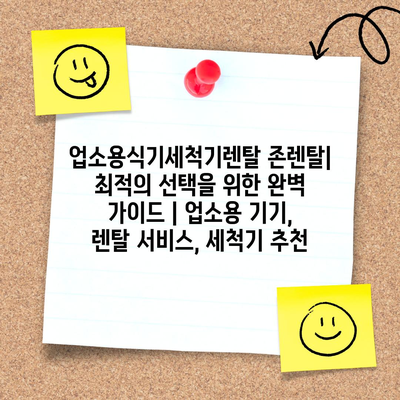 업소용식기세척기렌탈 존렌탈|
최적의 선택을 위한 완벽
가이드 | 업소용 기기,
렌탈 서비스, 세척기 추천